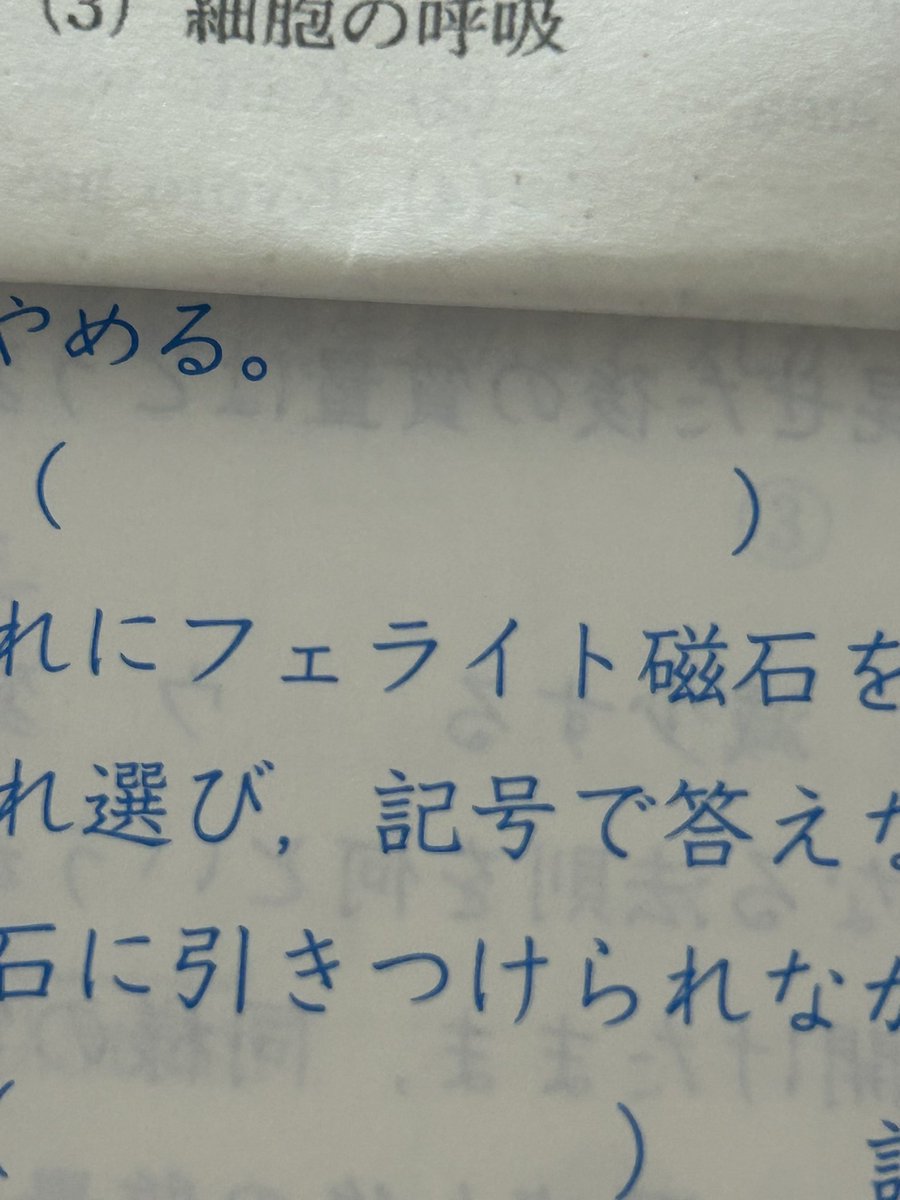 (3) 細胞の呼吸
やめる。
( )
れにフェライト磁石を
れ選び，記号で答えな
石に引きつけられなか
( )